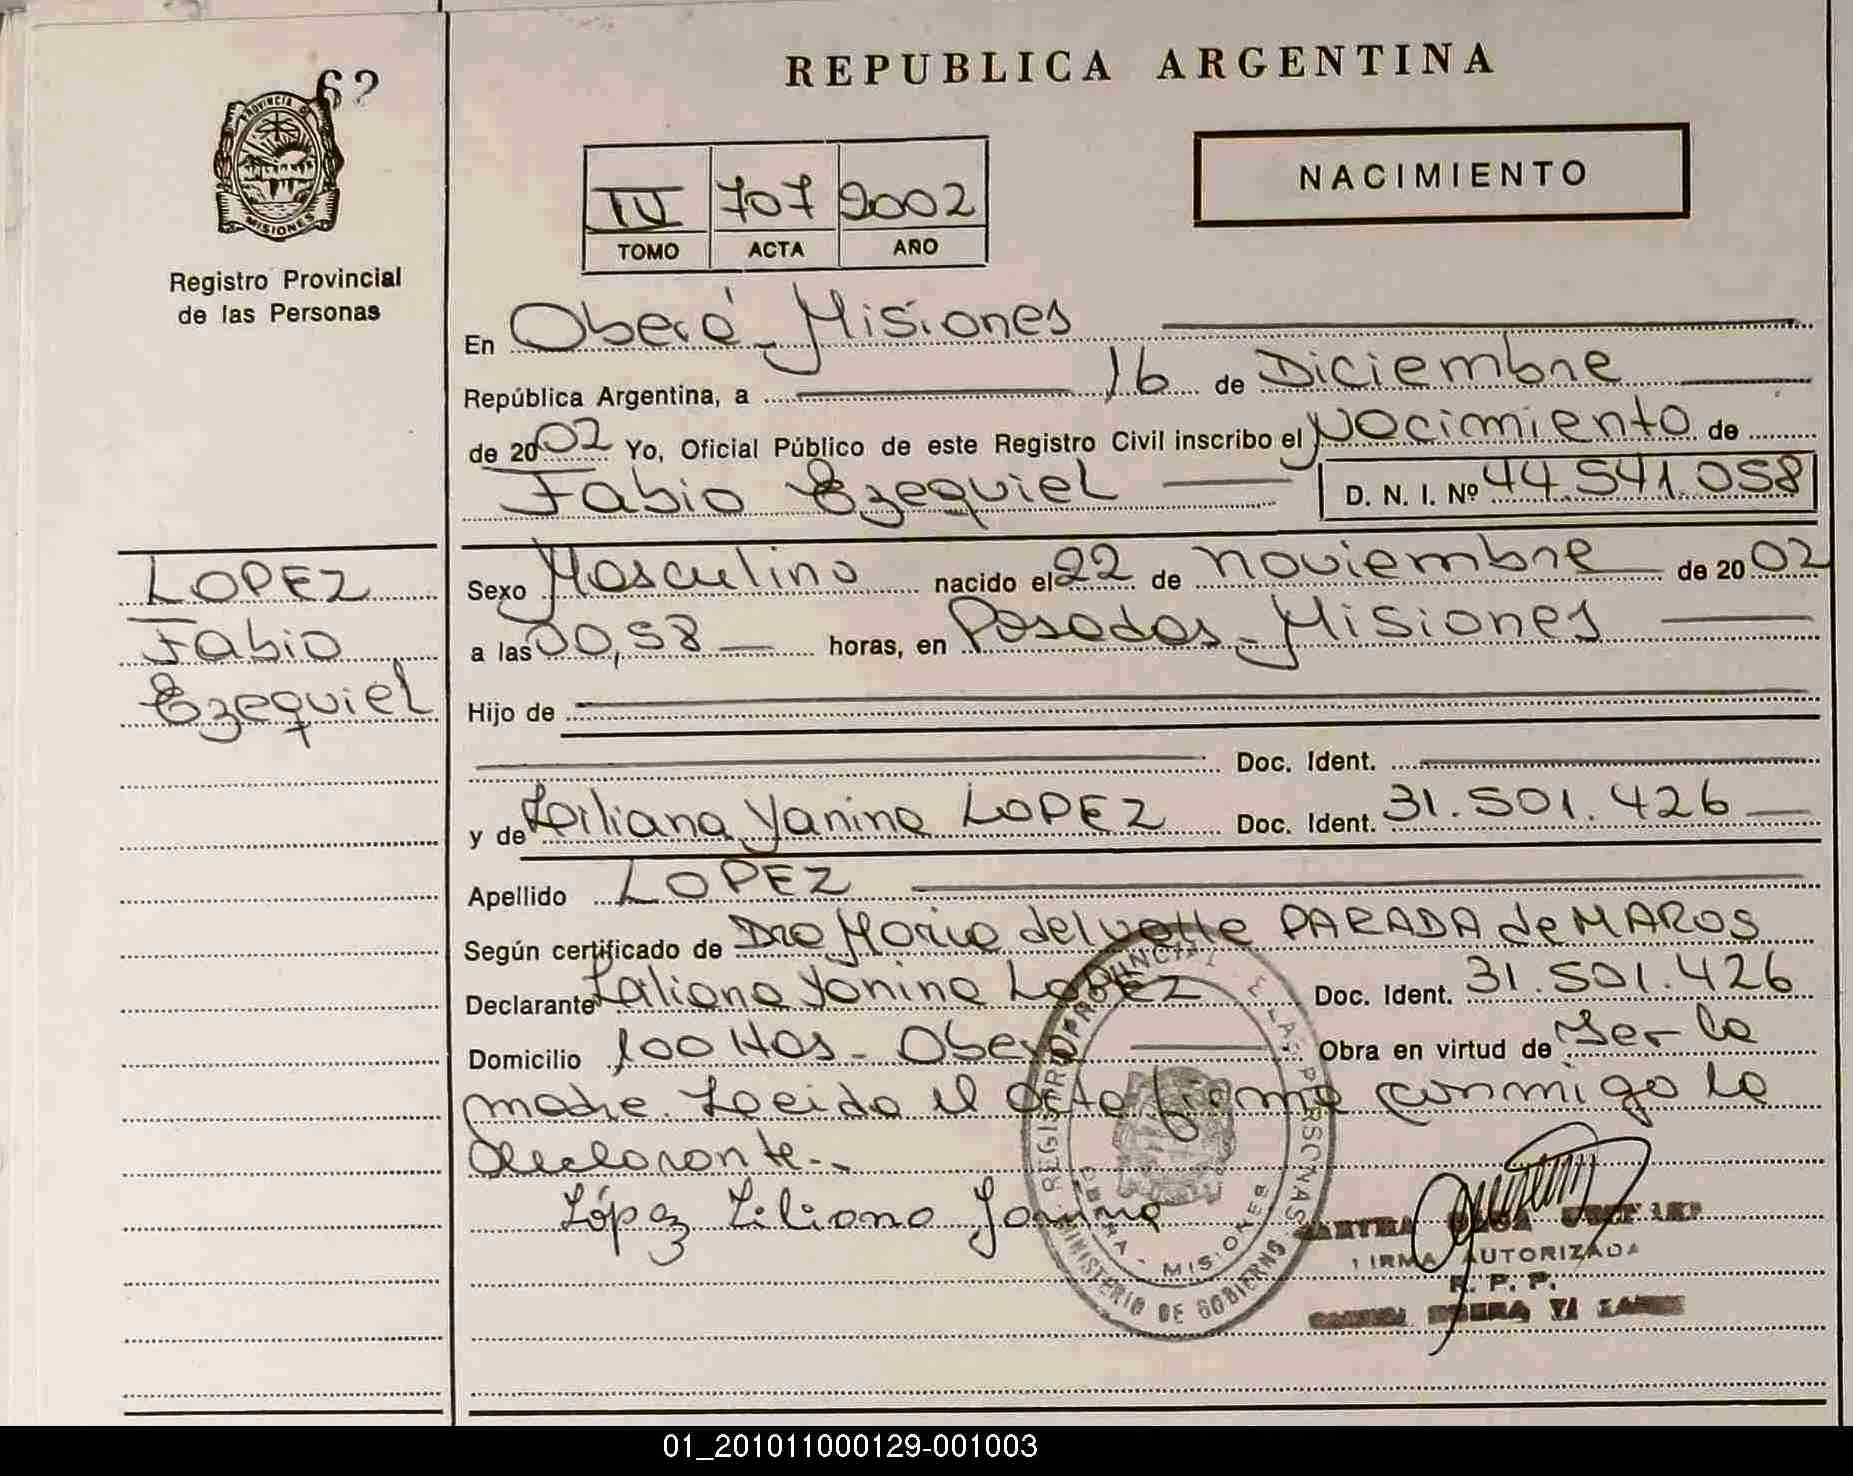 REPUBLICA ARGENTINA
62
PROVINCIA DE
MISIONES
Registro Provincial
de las Personas
NACIMIENTO
IV 707 2002
TOMO ACTA AÑO
En Oberá - Misiones
República Argentina, a 16 de Diciembre
de 2002 Yo, Oficial Público de este Registro Civil inscribo el Nacimiento de
Fabio Ezequiel D. N. I. Nº 44.541.058
LOPEZ
Fabio
Ezequiel
Sexo Masculino nacido el 22 de noviembre de 2002
a las 00,58 horas, en Posadas - Misiones
Hijo de
Doc. Ident.
y de Liliana Yanina LOPEZ Doc. Ident. 31.501.426
Apellido LOPEZ
Según certificado de Dra Maria del PARADA de MAROS
Declarante Liliana Yanina LOPEZ Doc. Ident. 31.501.426
Domicilio 100 Has - Oberá Obra en virtud de ser la
madre. Leida el acta firma conmigo la
declarante.-
López Liliana Yanina
REGISTRO PROVINCIAL DE LAS PERSONAS
MINISTERIO DE GOBIERNO
OBERA - MISIONES
FIRMA AUTORIZADA
R. P. P.
01_201011000129-001003